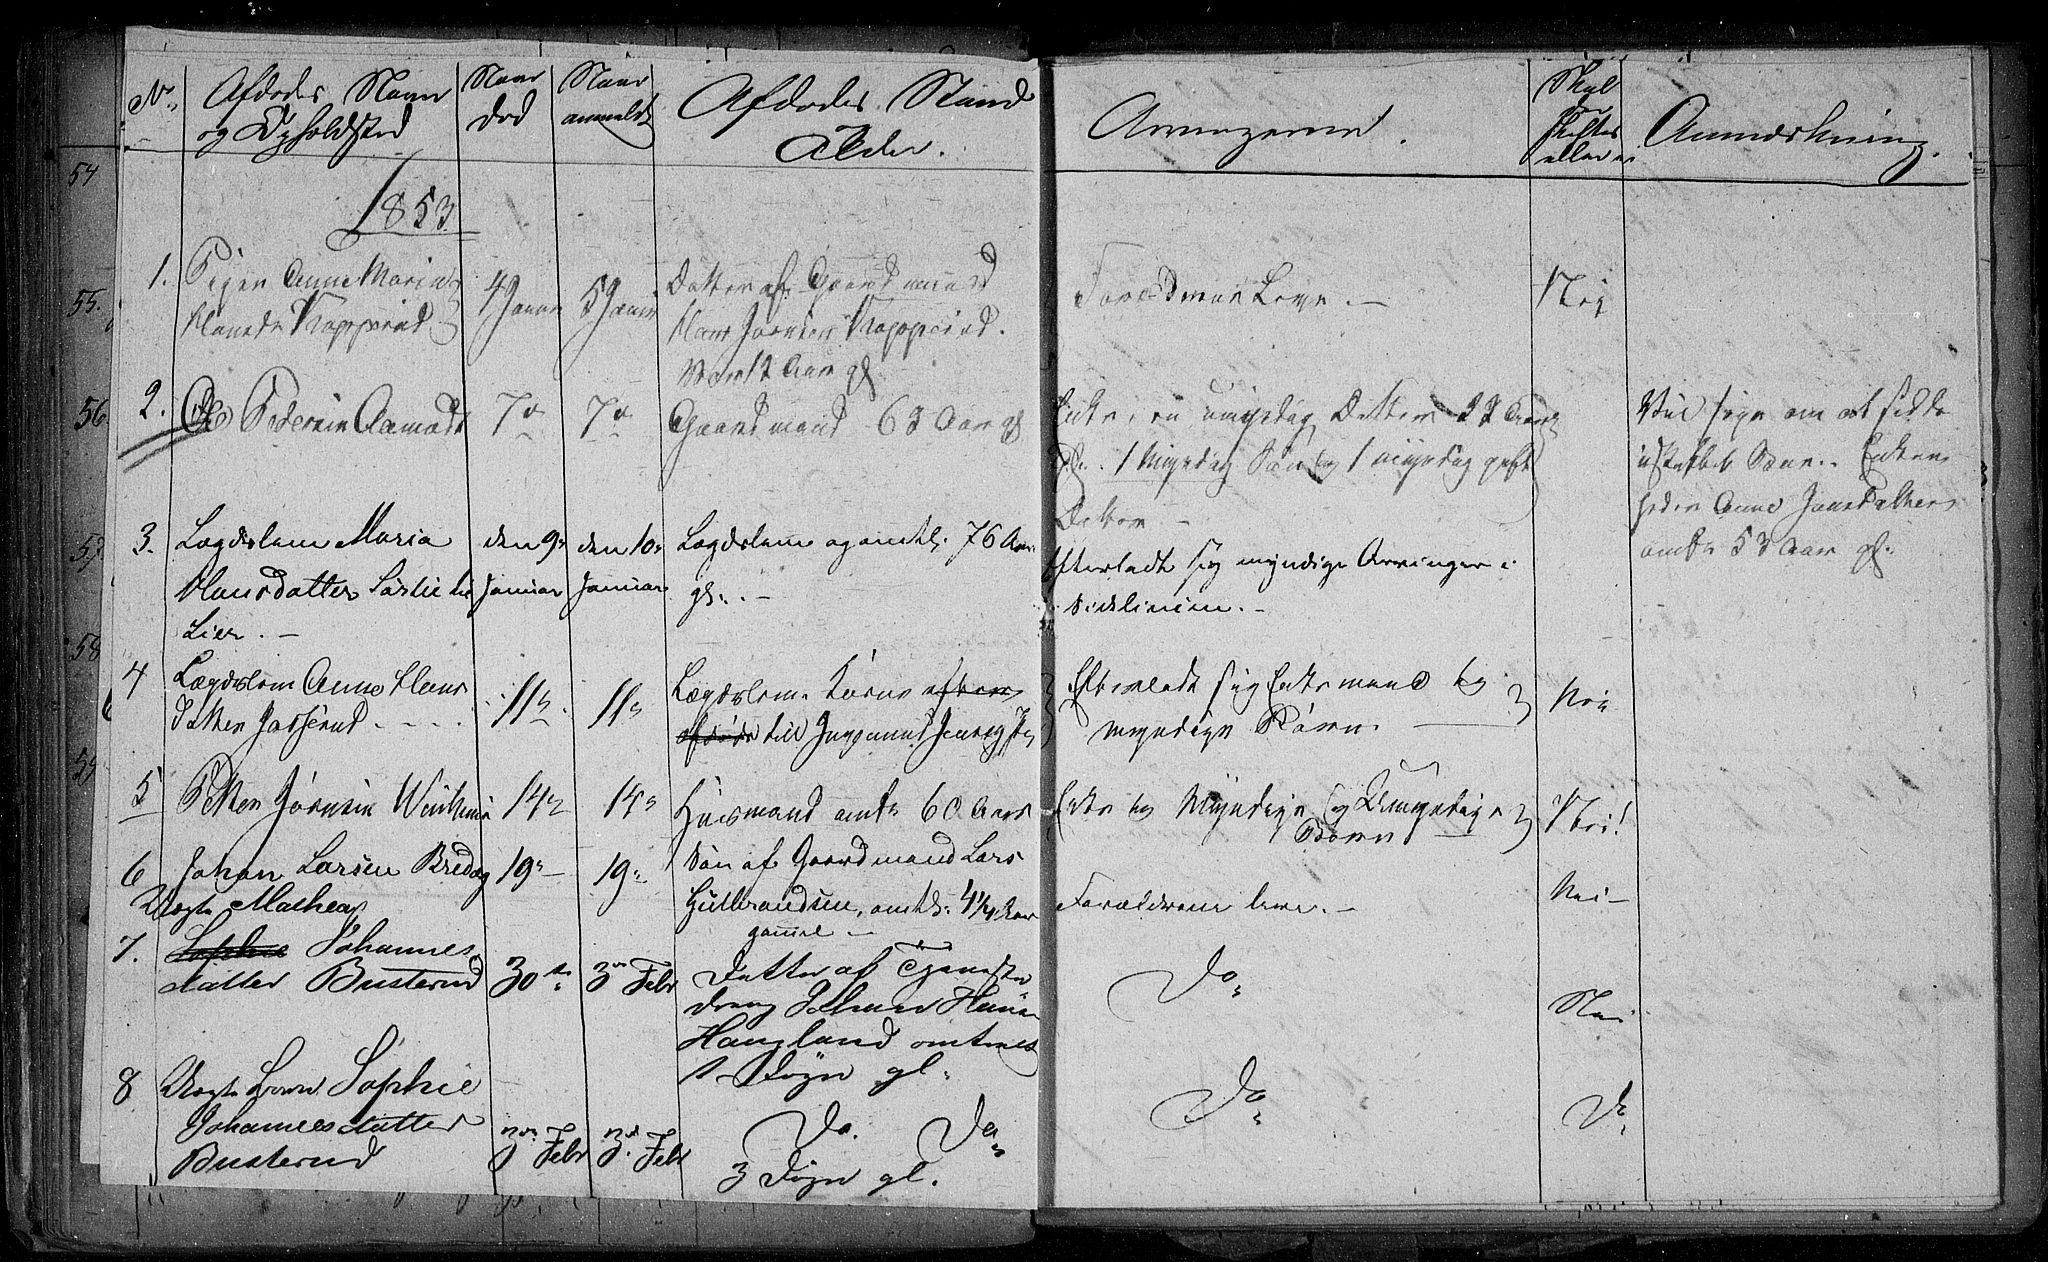 No Afdødes Navn
og Opholdsted
Naar
død
Naar
anmeldt
Afdødes Stand
Alder.
Arvingerne.
Skal
skiftes
eller ei
Anmærkning.
1853
54
55.
56
57.
58
59
1. Pigen Anne Marie
Hansdr Kopperud
4 Januar
5 Januar
Datter af Gaardmand
Hans Jørnsen Kopperud.
12 Aar gl
Forældrene Leve. –
Nei
2. Ole Pedersen Aamodt
7de
7de
Gaardmand 63 Aar gl
Enke, en umyndig Datter 22 Aar
gl. 1 Myndig Søn og 1 myndig gift
Datter –
Vil søge om at sidde
i uskiftet Boe. Enken
heder Anne Jonsdatter
omtr 53 Aar gl.
3. Lægdslem Maria
Hansdatter Lørlie
Lier. –
den 9.
Januar
den 10.
Januar
Lægdslem og omtl. 76 Aar
gl. –
Efterladt sig myndige Arvinger i
Sidelinien. –
4 Lægdslem Anne Hans
datter Josserud. – – –
11te
11te
Lægdslem. Kone
till Ingemund
Efterladt sig Enkemand og
myndige Børn.
Nei
5 Petter Jørnsen
14de
14de
Huusmand omtr 60 Aar
Enke og Myndige og Umyndige
Børn
Nei!
6 Johan Larsen Bredag
19.
19.
Søn af Gaardmand Lars
Gulbrandsen, omtl. 4¼ Aar
gammel –
Forældrene leve. –
Nei –
7. Uægte Mathea
Sophie Johannes
datter Busterud
30te
3de Febr
Datter af Tjeneste
dreng Johannes Hansen
Haugland omtrent
1 Døgn gl.
Do
Nei
8 Uægte Barn Sophie
Johannesdatter
Busterud
3de Febr
3de Febr
Do. Do
3 Døgn gl.
Do
Do